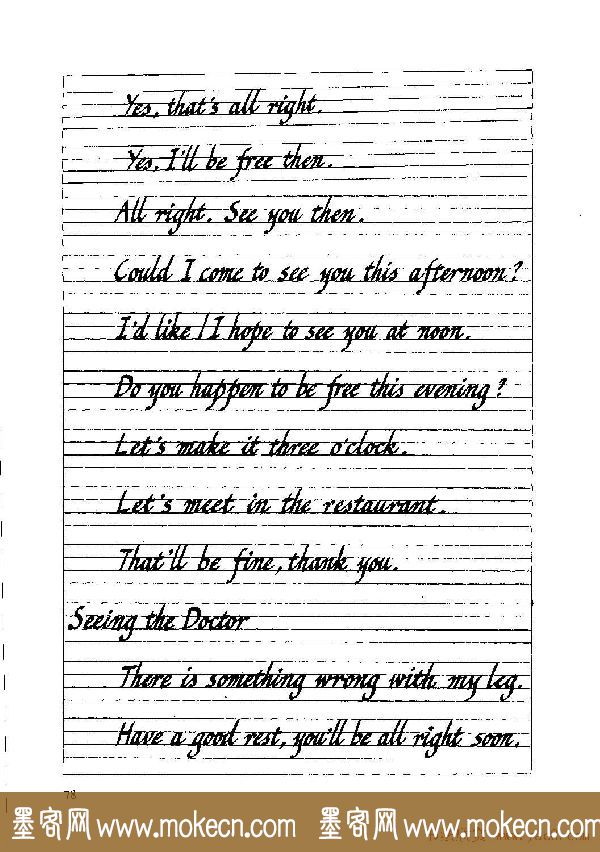 Yes, that's all right.
Yes, I'll be free then.
All right. See you then.
Could I come to see you this afternoon?
I'd like / I hope to see you at noon.
Do you happen to be free this evening?
Let's make it three o'clock.
Let's meet in the restaurant.
That'll be fine, thank you.
Seeing the Doctor
There is something wrong with my leg.
Have a good rest, you'll be all right soon.
78
墨客网 www.mokecn.com 墨客网 www.mokecn.com